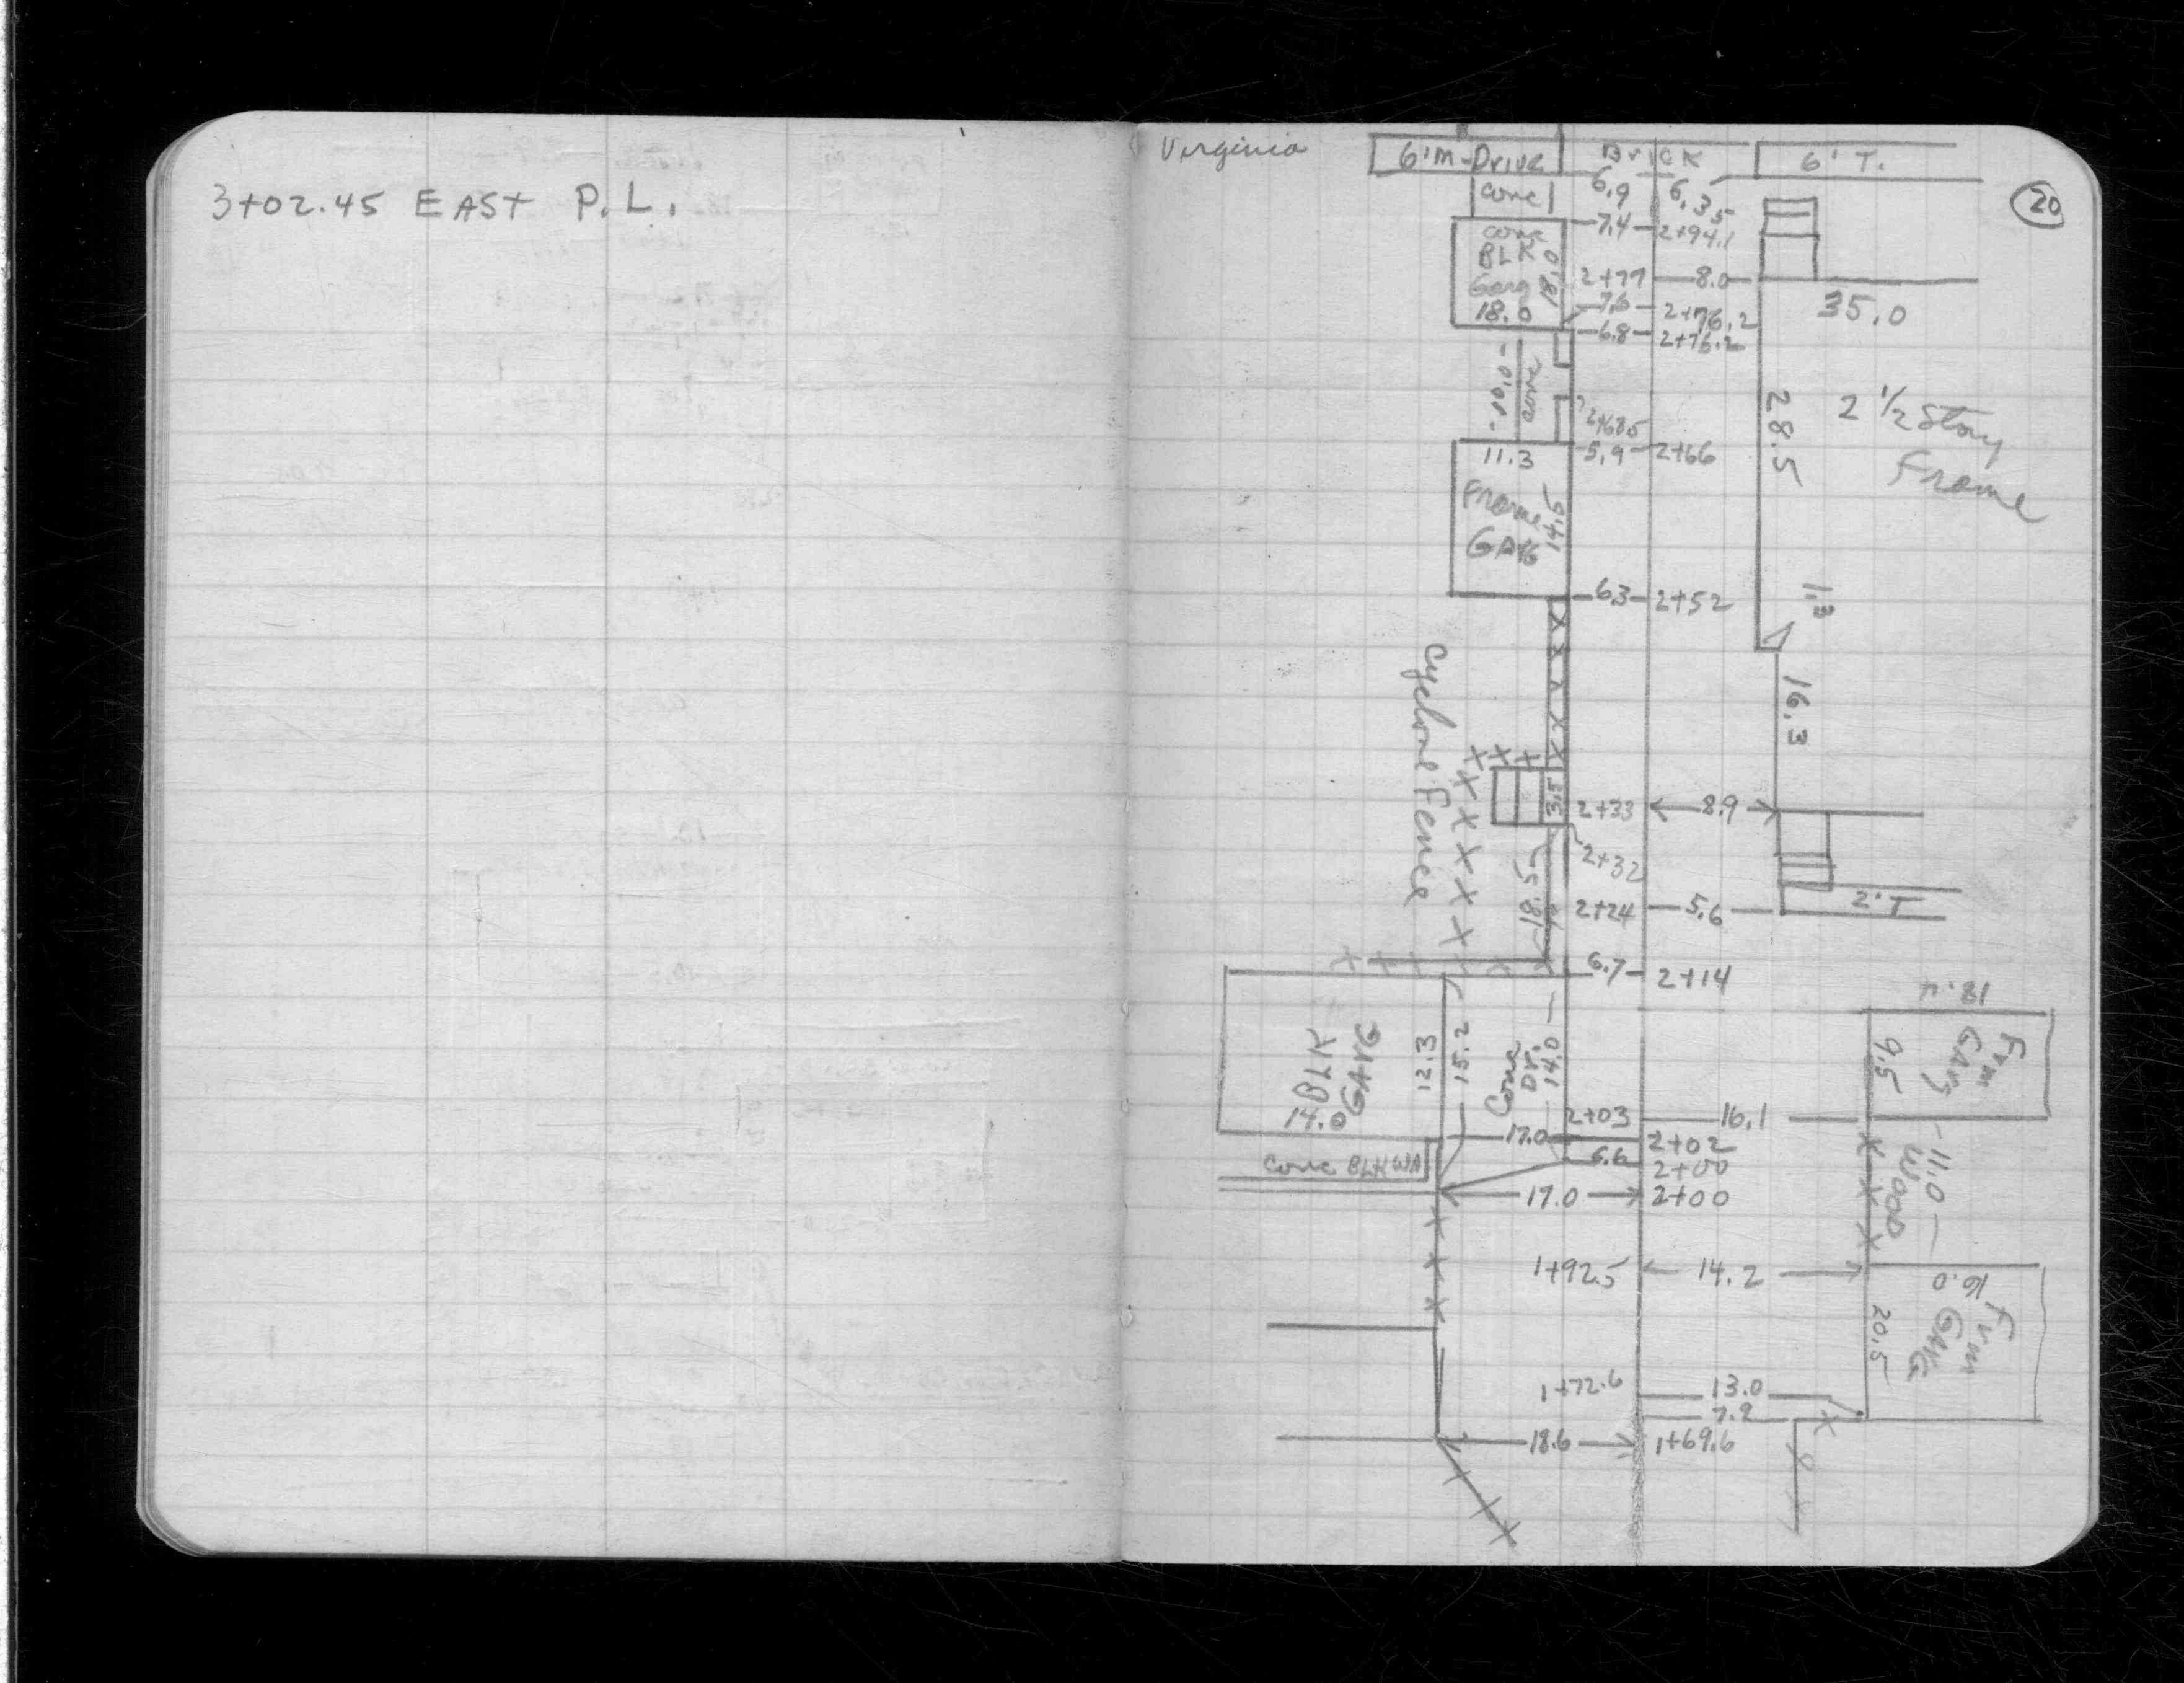 3+02.45 EAST P.L.
Virginia
6'M-Drive
Brick
6' T.
20
conc
6.9
6.35
7.4
2+94.1
conc
BLK
Garg
18.0
18.0
2+77
8.0
7.6
2+76.2
6.8
2+76.2
35.0
10.0
conc
28.5
2 1/2 Story
Frame
2+68.5
5.9
2+66
11.3
Frame
GArG
14.5
6.3
2+52
1.3
Cyclone Fence
16.3
3.5
2+33
8.9
2+32
18.5
2+24
5.6
2'T
6.7
2+14
18.4
Frm
GArg
9.5
BLK
GArG
14.0
12.3
15.2
Conc
Dr.
14.0
2+03
16.1
17.0
2+02
6.6
2+00
conc BLK WA
11.0
WOOD
17.0
2+00
1+92.5
14.2
16.0
Frm
GArG
20.5
1+72.6
13.0
7.2
18.6
1+69.6